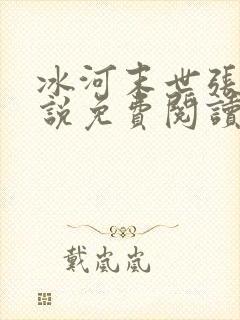 冰河末世张
說免費閱讀
戴嵐嵐